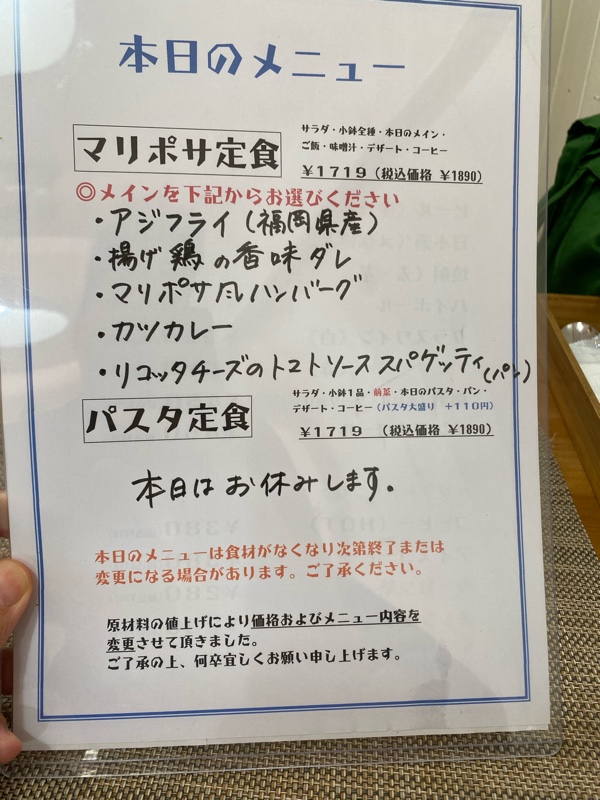 本日のメニュー
マリポサ定食
サラダ・小鉢全種・本日のメイン・
ご飯・味噌汁・デザート・コーヒー
¥1719(税込価格 ¥1890)
◎メインを下記からお選びください
・アジフライ(福岡県産)
・揚げ鶏の香味ダレ
・マリポサ風ハンバーグ
・カツカレー
・リコッタチーズのトマトソーススパゲッティ(パン)
パスタ定食
サラダ・小鉢1品・前菜・本日のパスタ・パン・
デザート・コーヒー(パスタ大盛り +110円)
¥1719 (税込価格 ¥1890)
本日はお休みします。
本日のメニューは食材がなくなり次第終了または
変更になる場合があります。ご了承ください。
原材料の値上げにより価格およびメニュー内容を
変更させて頂きました。
ご了承の上、何卒宜しくお願い申し上げます。